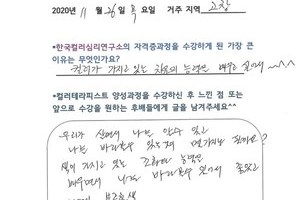 2020년 11 월 26일 목 요일 거주 지역 고창
*한국컬러심리연구소의 자격증과정을 수강하게 된 가장 큰
이유는 무엇인가요?
컬러가 가지고 있는 치유의 능력은 배우고 싶어서~~
*컬러테라피스트 양성과정을 수강하신 후 느낀 점 또는
앞으로 수강을 원하는 후배들에게 글을 남겨주세요^^
우리가 살면서 나를 알수 있고
나를 바라볼수 있는게 몇가지나 될까요?
색이 가지고 있는 조화와 능력은
배우면서 나를 바라볼수 있어서 좋았고